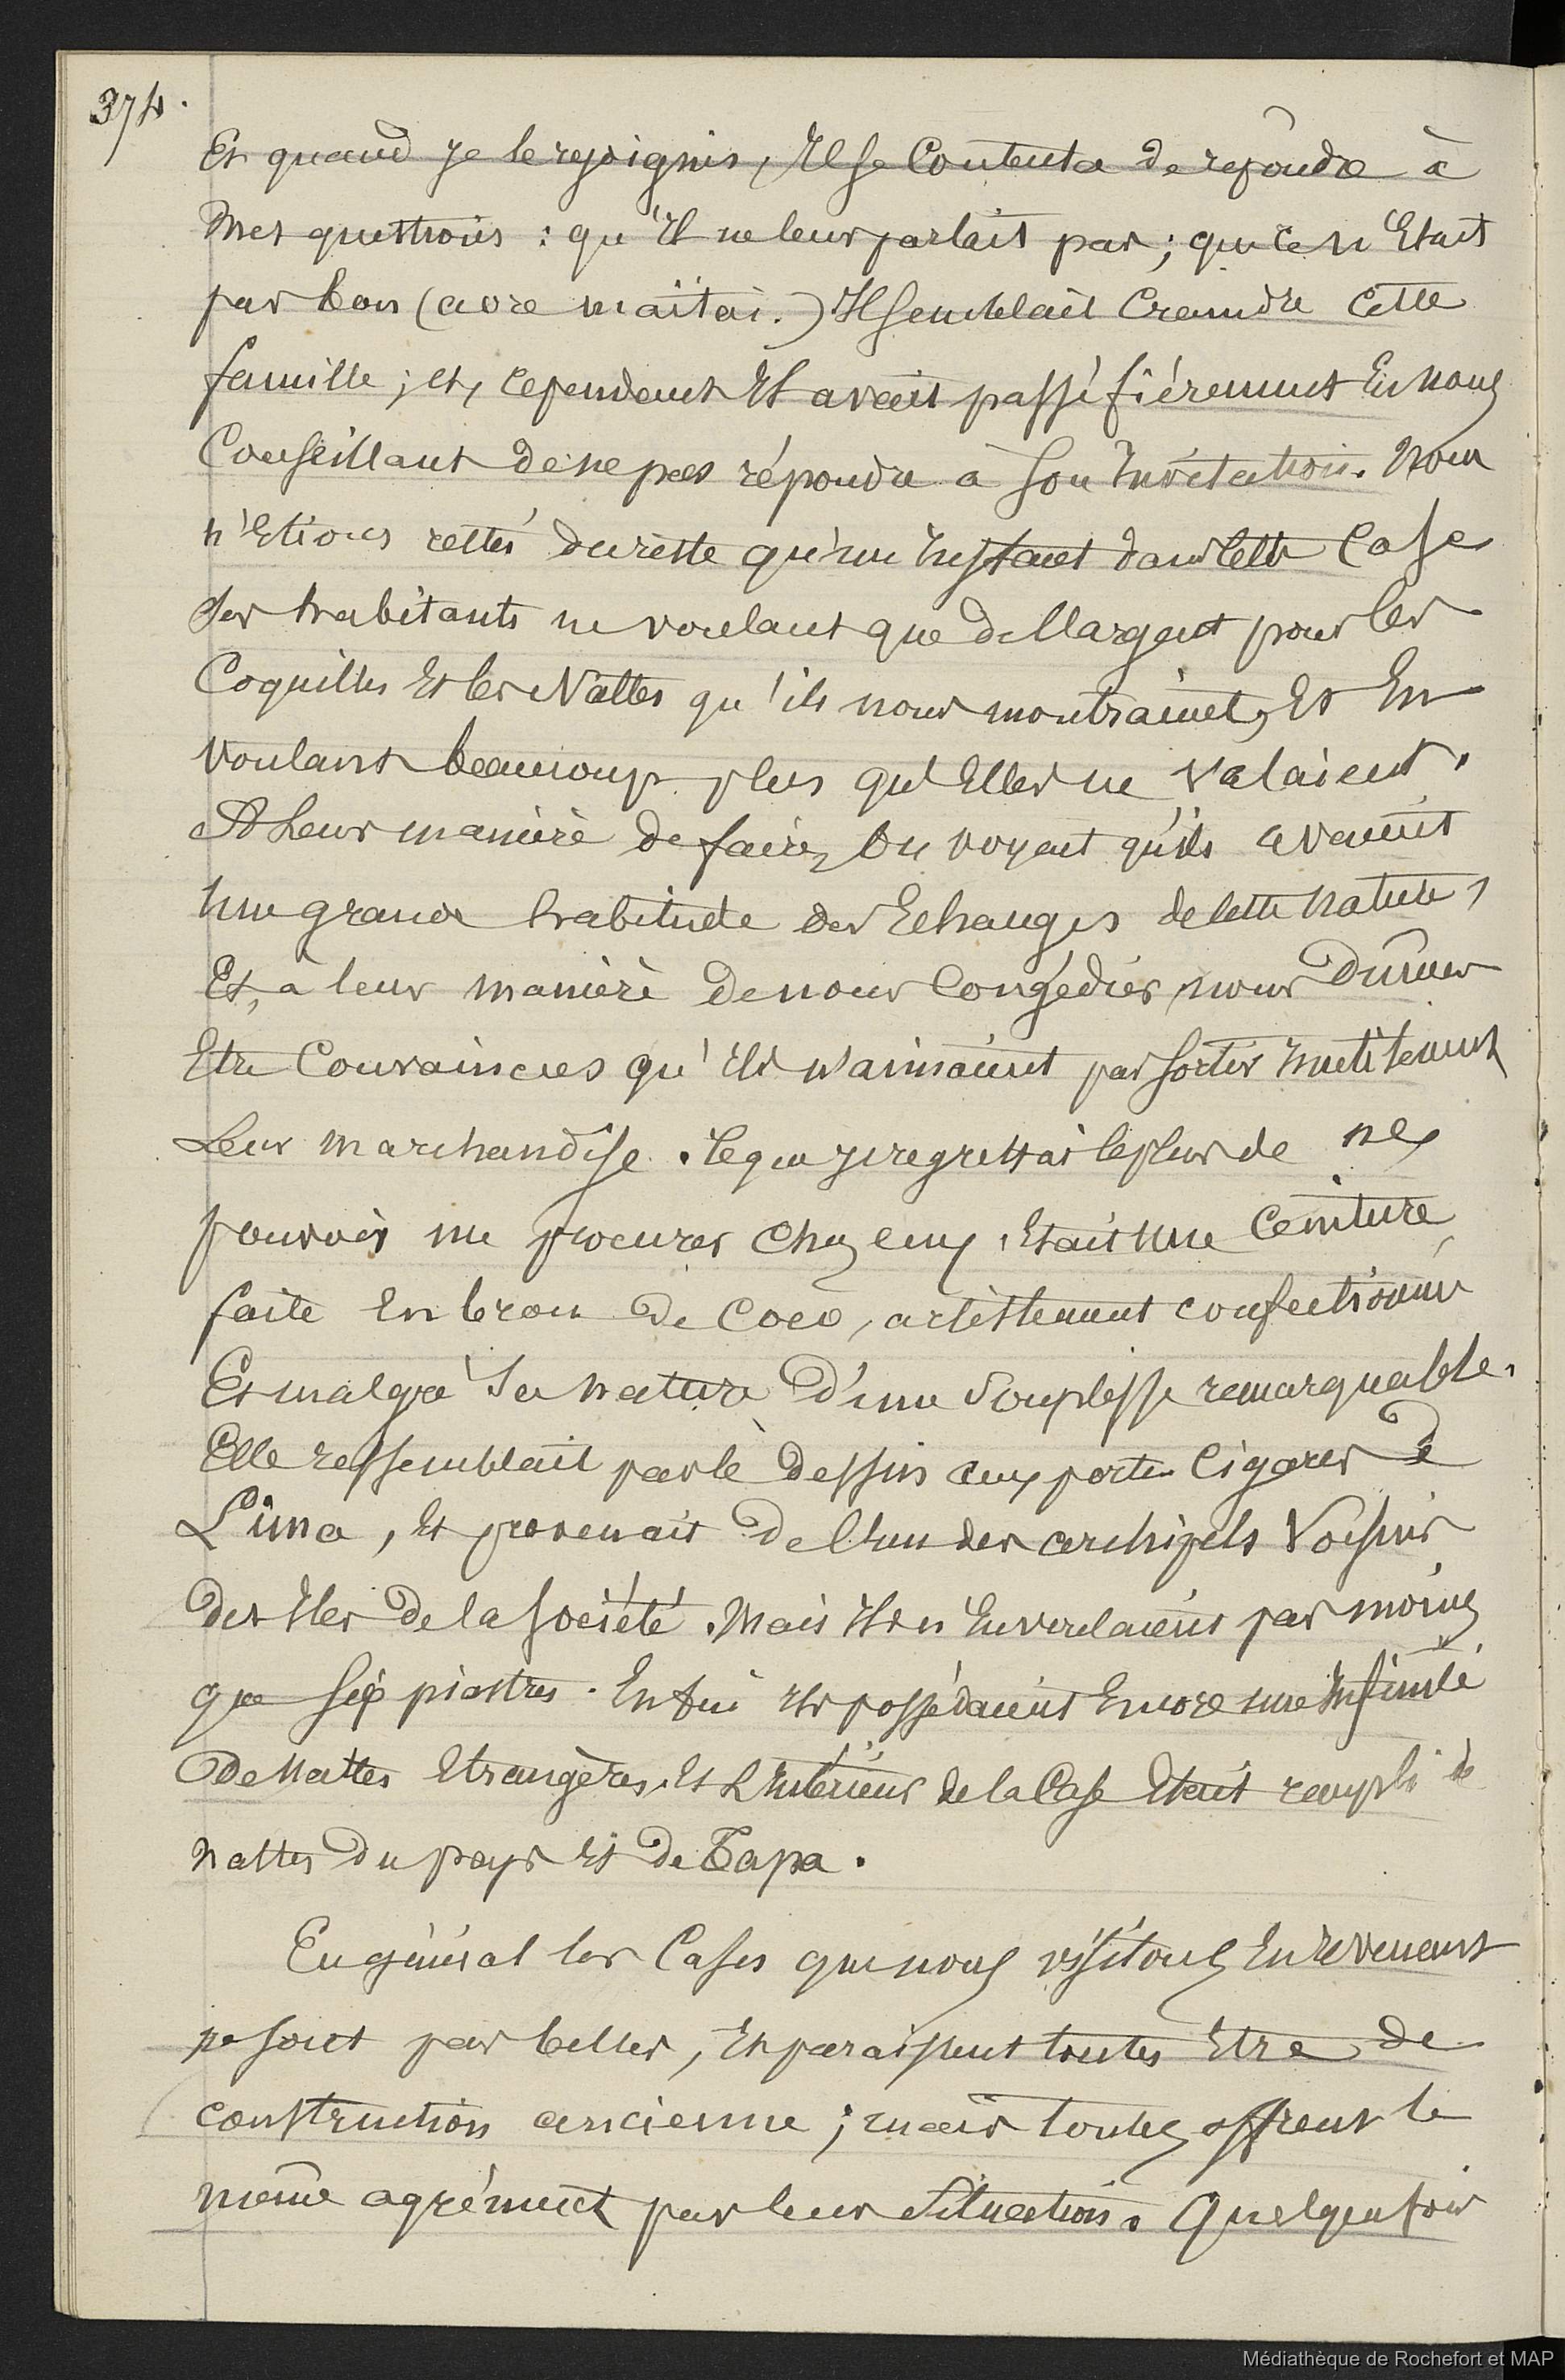 374.
Et quand je le rejoignis, Il se Contenta de répondre à
mes questions : qu'Il ne leur parlait pas ; que ce n'Etait
pas bon (aore maïtaï.) Il semblait Craindre Cette
famille ; et, cependant Il avait passé fiérement En nous
Conseillant de ne pas répondre à son Invitation. Nous
n'Etions restés du reste qu'un Instant dans Cette Case
Ses habitants ne voulant que de l'argent pour les
Coquilles Et les Nattes qu'ils nous montraient, Et En
Voulant beaucoup plus qu'Elles ne Valaient.
A Leur manière de faire, On voyait qu'ils avaient
Une grande habitude des Echanges de cette Nature,
Et, à leur manière de nous Congédier, nous Dûmes
Etre Convaincus qu'Ils n'aimaient pas sortir Inutilement
Leur Marchandise. Ce que je regrettai le plus de ne
pouvoir me procurer Chez eux, Etait Une Ceinture
faite En brou de Coco, artistement confectionnée
Et malgré Sa Nature D'une Souplesse remarquable.
Elle ressemblait par le Dessin aux porte-Cigares de
Lima, Et provenait De l'un des archipels Voisins
Des Iles De la Société. Mais Ils n'En voulaient pas moins
que six piastres. Enfin Ils possédaient Encore une Infinité
De Nattes Etrangères, Et L'Intérieur de la Case Etait rempli de
Nattes Du pays Et De Tapa.
En général les Cases que nous visitons En revenant
ne sont pas belles, Et paraissent toutes Etre de
construction ancienne ; mais toutes offrent le
même agrément par leur Situation. Quelquefois
Médiathèque de Rochefort et MAP